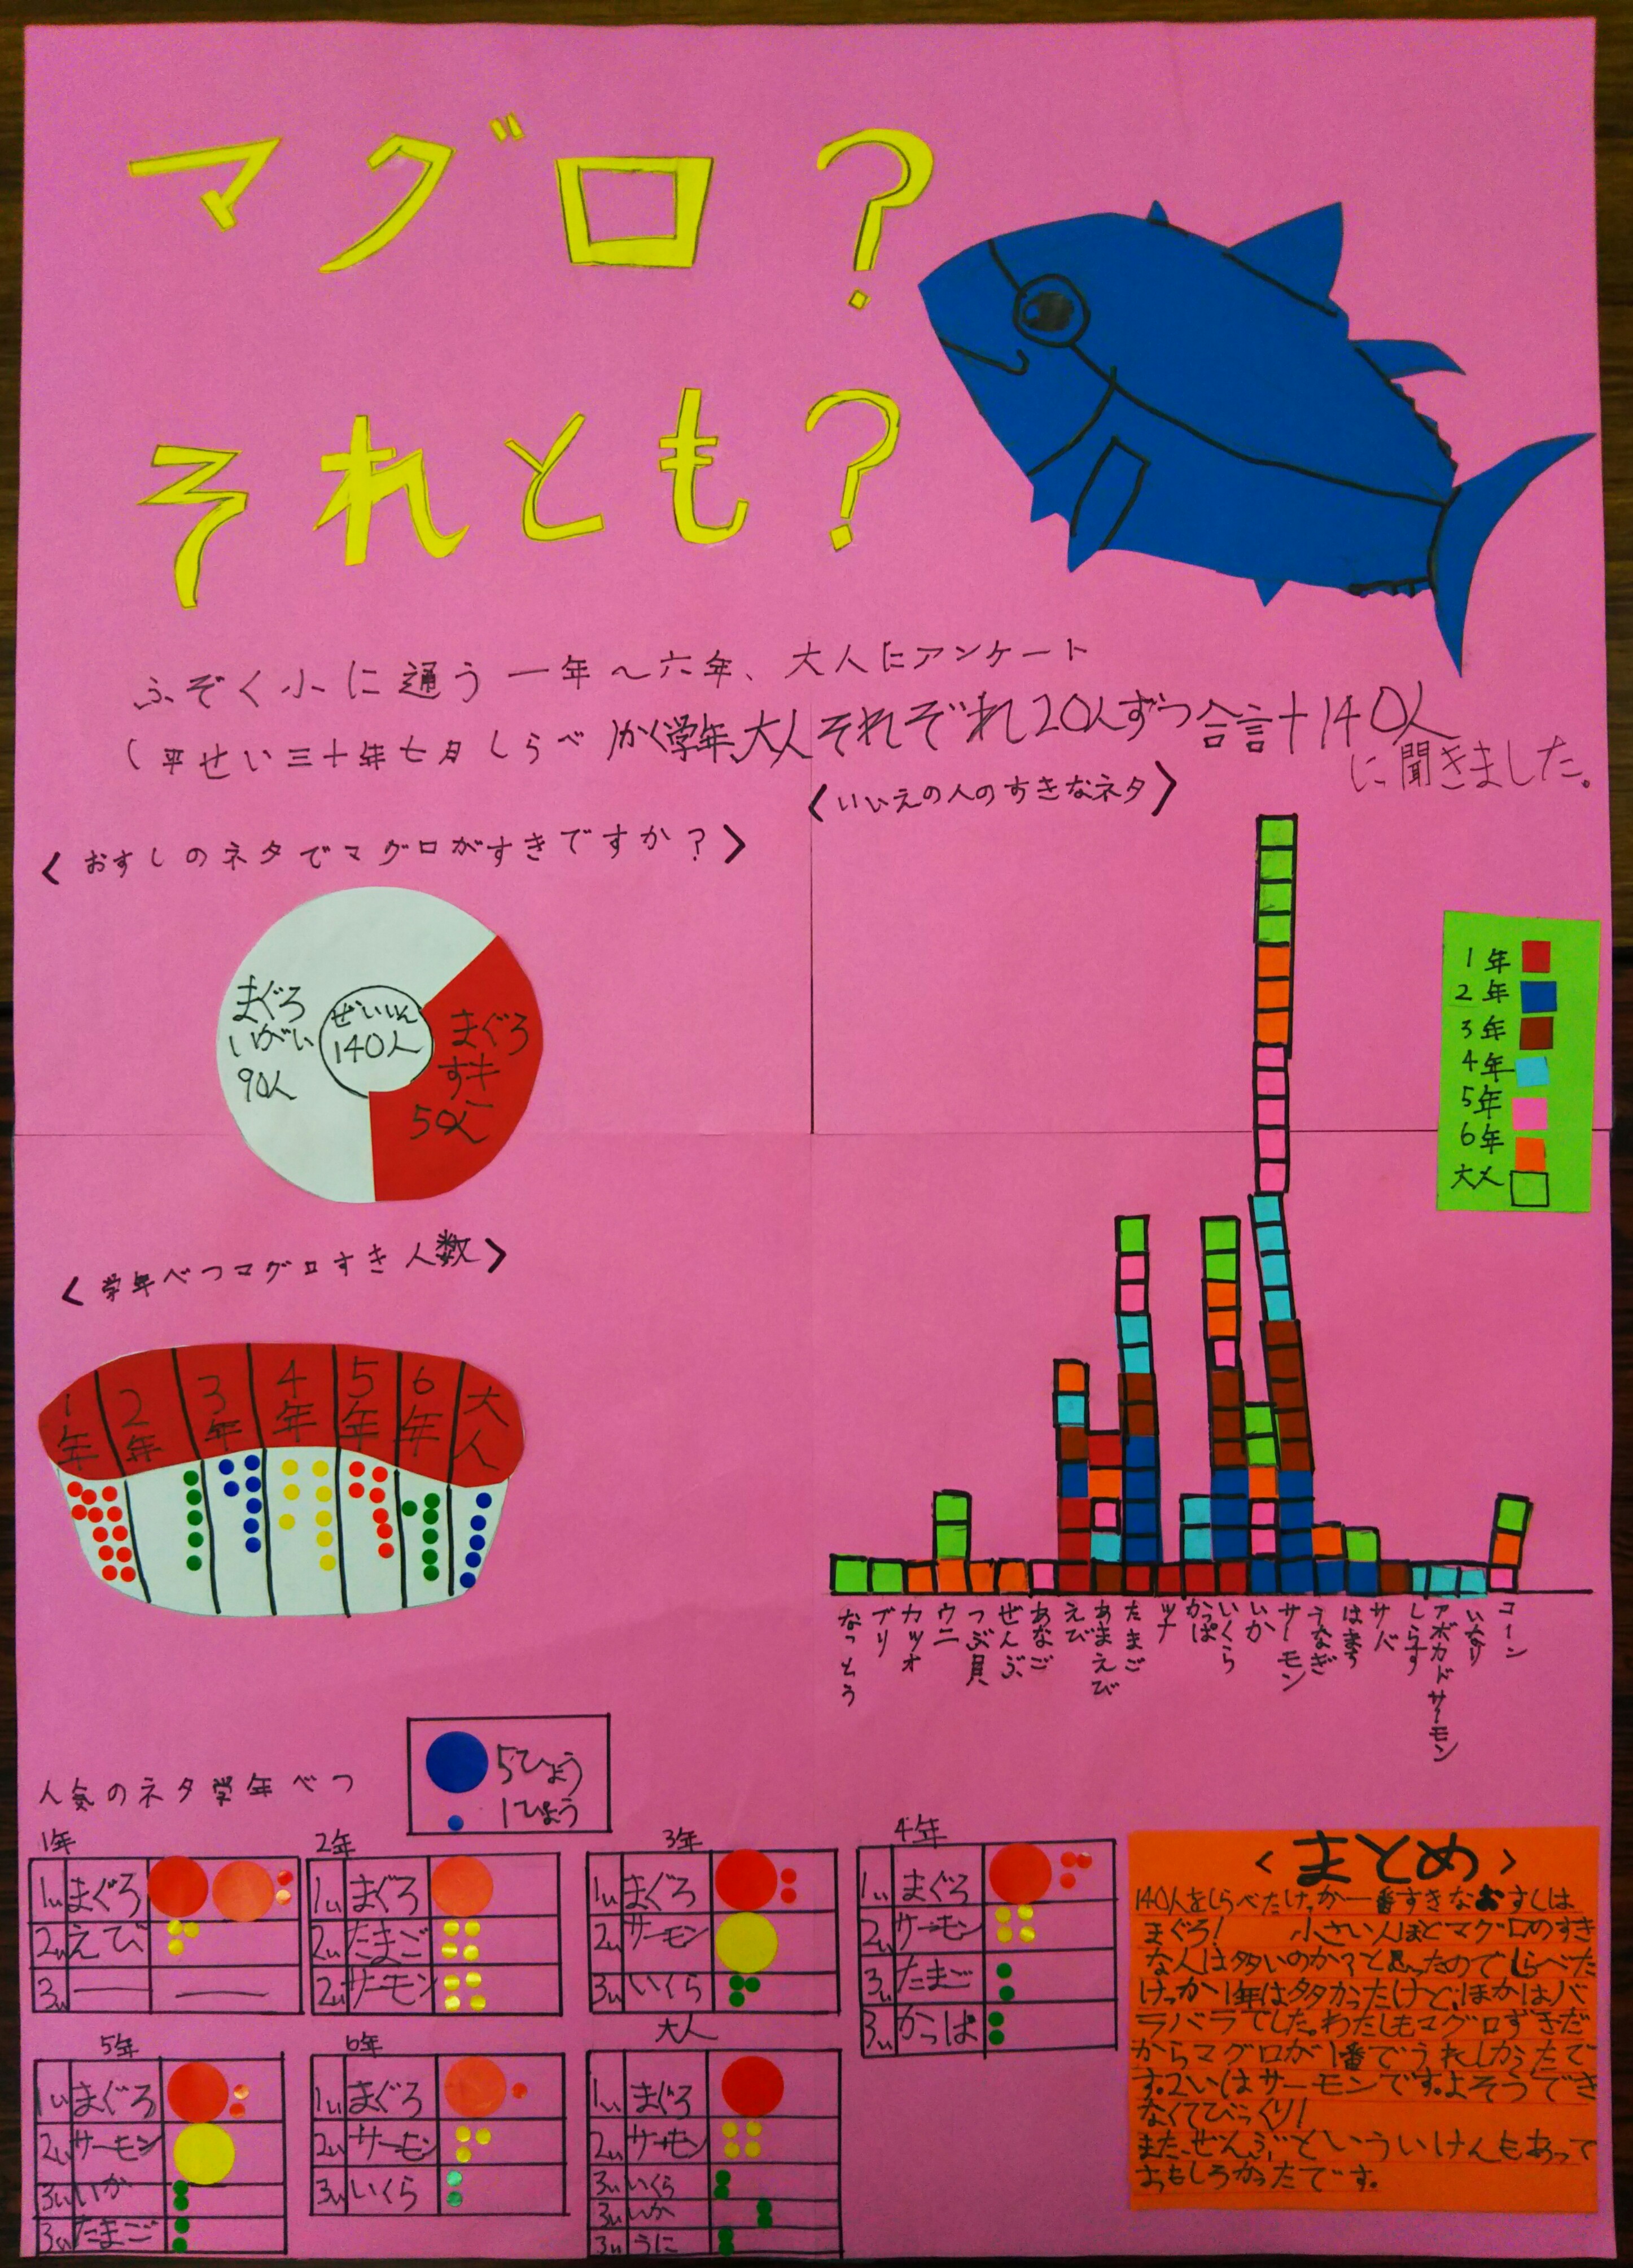 マグロ?
それとも?
ふぞく小に通う一年~六年、大人にアンケート
(平せい三十年七月しらべ)かく学年、大人それぞれ20人ずつ合計140人
に聞きました。
<おすしのネタでマグロがすきですか?>
まぐろ
いがい
90人
ぜいいん
140人
まぐろ
すき
50人
<学年べつマグロすき人数>
1年
2年
3年
4年
5年
6年
大人
<いいえの人のすきなネタ>
1年
2年
3年
4年
5年
6年
大人
なっとう
ブリ
カツオ
ウニ
つぶ貝
ぜんぶ
あなご
えび
あまえび
たまご
ツナ
かっぱ
いくら
いか
サーモン
うなぎ
はまち
サバ
しらす
アボカドサーモン
いなり
コーン
人気のネタ学年べつ
5ひょう
1ひょう
1年
1い まぐろ
2い えび
3い
2年
1い まぐろ
2い たまご
2い サーモン
3年
1い まぐろ
2い サーモン
3い いくら
4年
1い まぐろ
2い サーモン
3い たまご
3い かっぱ
5年
1い まぐろ
2い サーモン
3い いか
3い たまご
6年
1い まぐろ
2い サーモン
3い いくら
大人
1い まぐろ
2い サーモン
3い いくら
3い いか
3い うに
<まとめ>
140人をしらべたけっか一番すきなおすしは
まぐろ! 小さい人ほどマグロのすき
な人は多いのか?と思ったのでしらべた
けっか1年は多かったけど、ほかはバ
ラバラでした。わたしもマグロずきだ
からマグロが1番でうれしかったで
す。2いはサーモンです。よそうでき
なくてびっくり!
また、ぜんぶといういけんもあって
おもしろかったです。